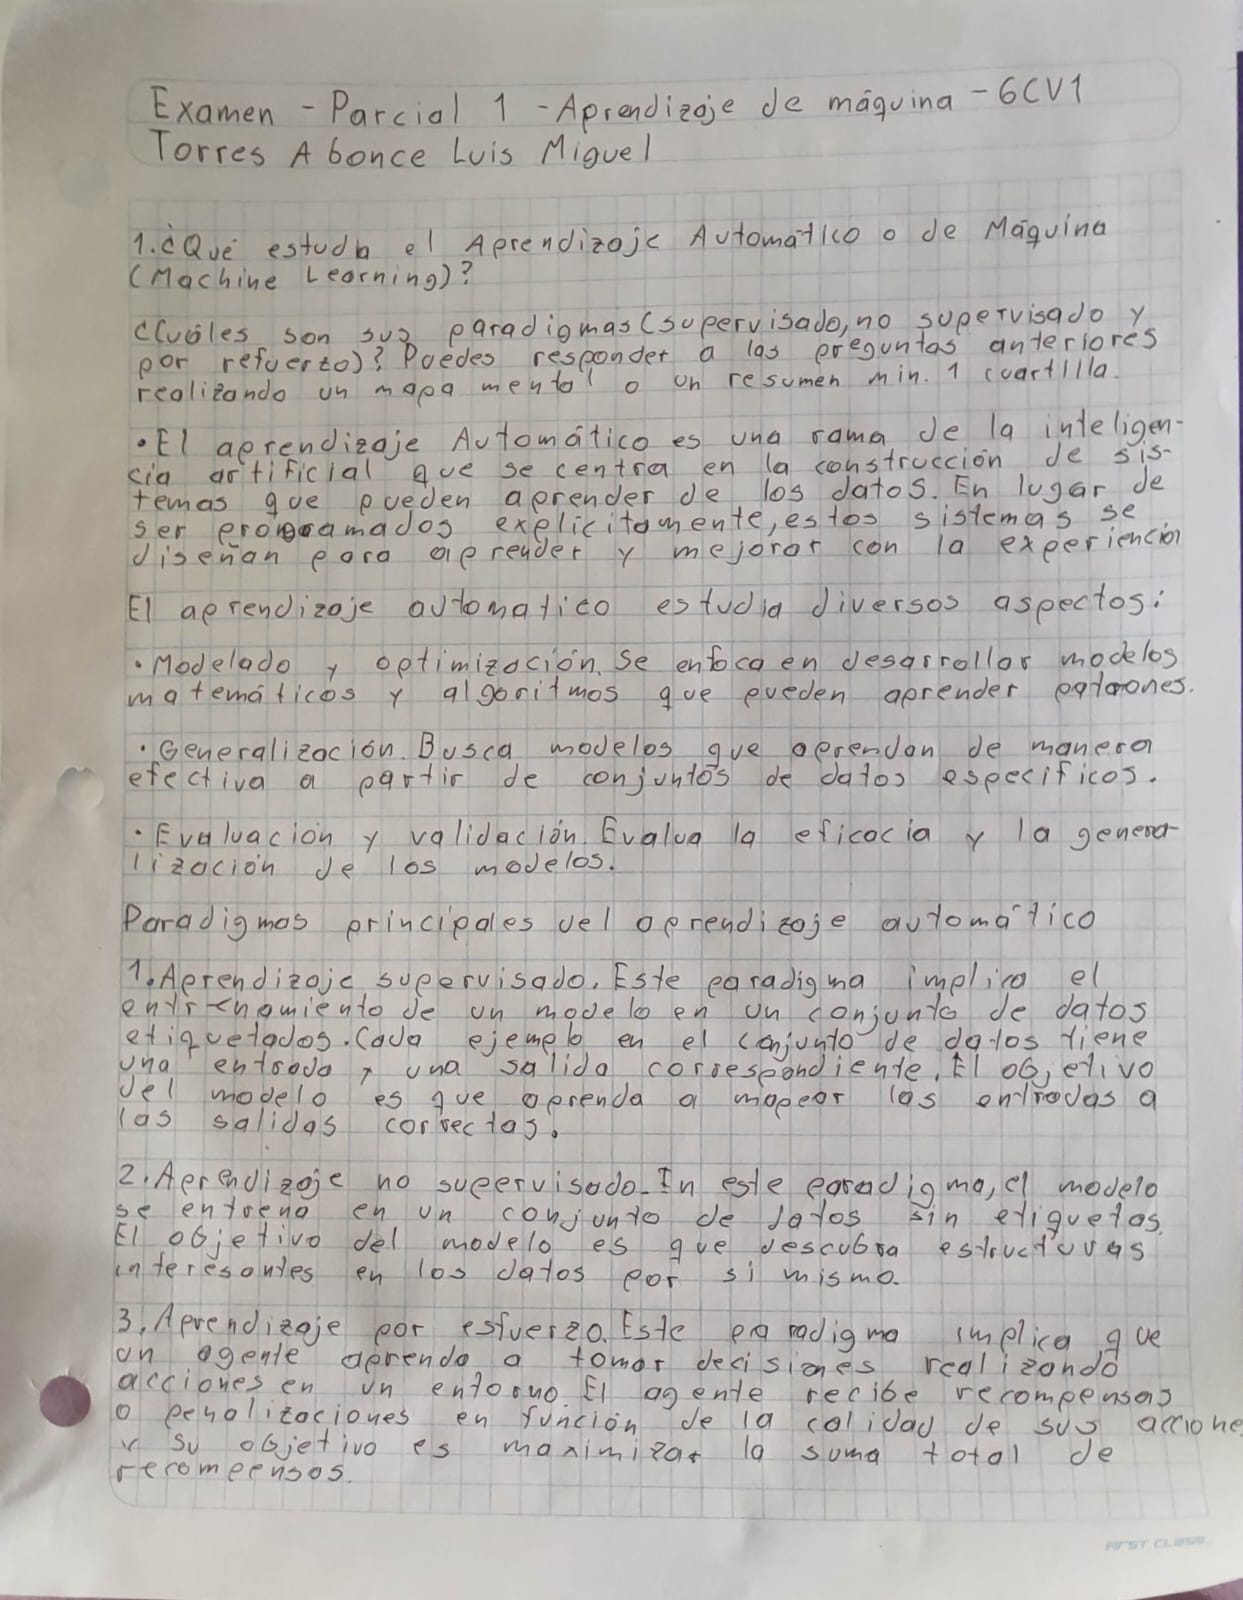 Examen - Parcial 1 - Aprendizaje de máquina - 6CV1
Torres Abonce Luis Miguel
1. ¿Qué estudia el Aprendizaje Automático o de Máquina
(Machine Learning)?
¿Cuáles son sus paradigmas (supervisado, no supervisado y
por refuerzo)? Puedes responder a las preguntas anteriores
realizando un mapa mental o un resumen min. 1 cuartilla.
• El aprendizaje Automático es una rama de la inteligen-
cia artificial que se centra en la construcción de sis-
temas que pueden aprender de los datos. En lugar de
ser programados explicitamente, estos sistemas se
diseñan para aprender y mejorar con la experiencia
El aprendizaje automatico estudia diversos aspectos:
• Modelado y optimización. Se enfoca en desarrollar modelos
matemáticos y algoritmos que pueden aprender patrones.
• Generalización. Busca modelos que aprendan de manera
efectiva a partir de conjuntos de datos especificos.
• Evaluación y validación. Evalua la eficacia y la genera-
lización de los modelos.
Paradigmas principales del aprendizaje automático
1. Aprendizaje supervisado. Este paradigma implica el
entrenamiento de un modelo en un conjunto de datos
etiquetados. Cada ejemplo en el conjunto de datos tiene
una entrada y una salida correspondiente. El objetivo
del modelo es que aprenda a mapear las entradas a
las salidas correctas.
2. Aprendizaje no supervisado. En este paradigma, el modelo
se entrena en un conjunto de datos sin etiquetas.
El objetivo del modelo es que descubra estructuras
interesantes en los datos por si mismo.
3. Aprendizaje por esfuerzo. Este paradigma implica que
un agente aprenda a tomar decisiones realizando
acciones en un entorno. El agente recibe recompensas
o penalizaciones en función de la calidad de sus accione
y su objetivo es maximizar la suma total de
recompensas.
FIRST CLASS